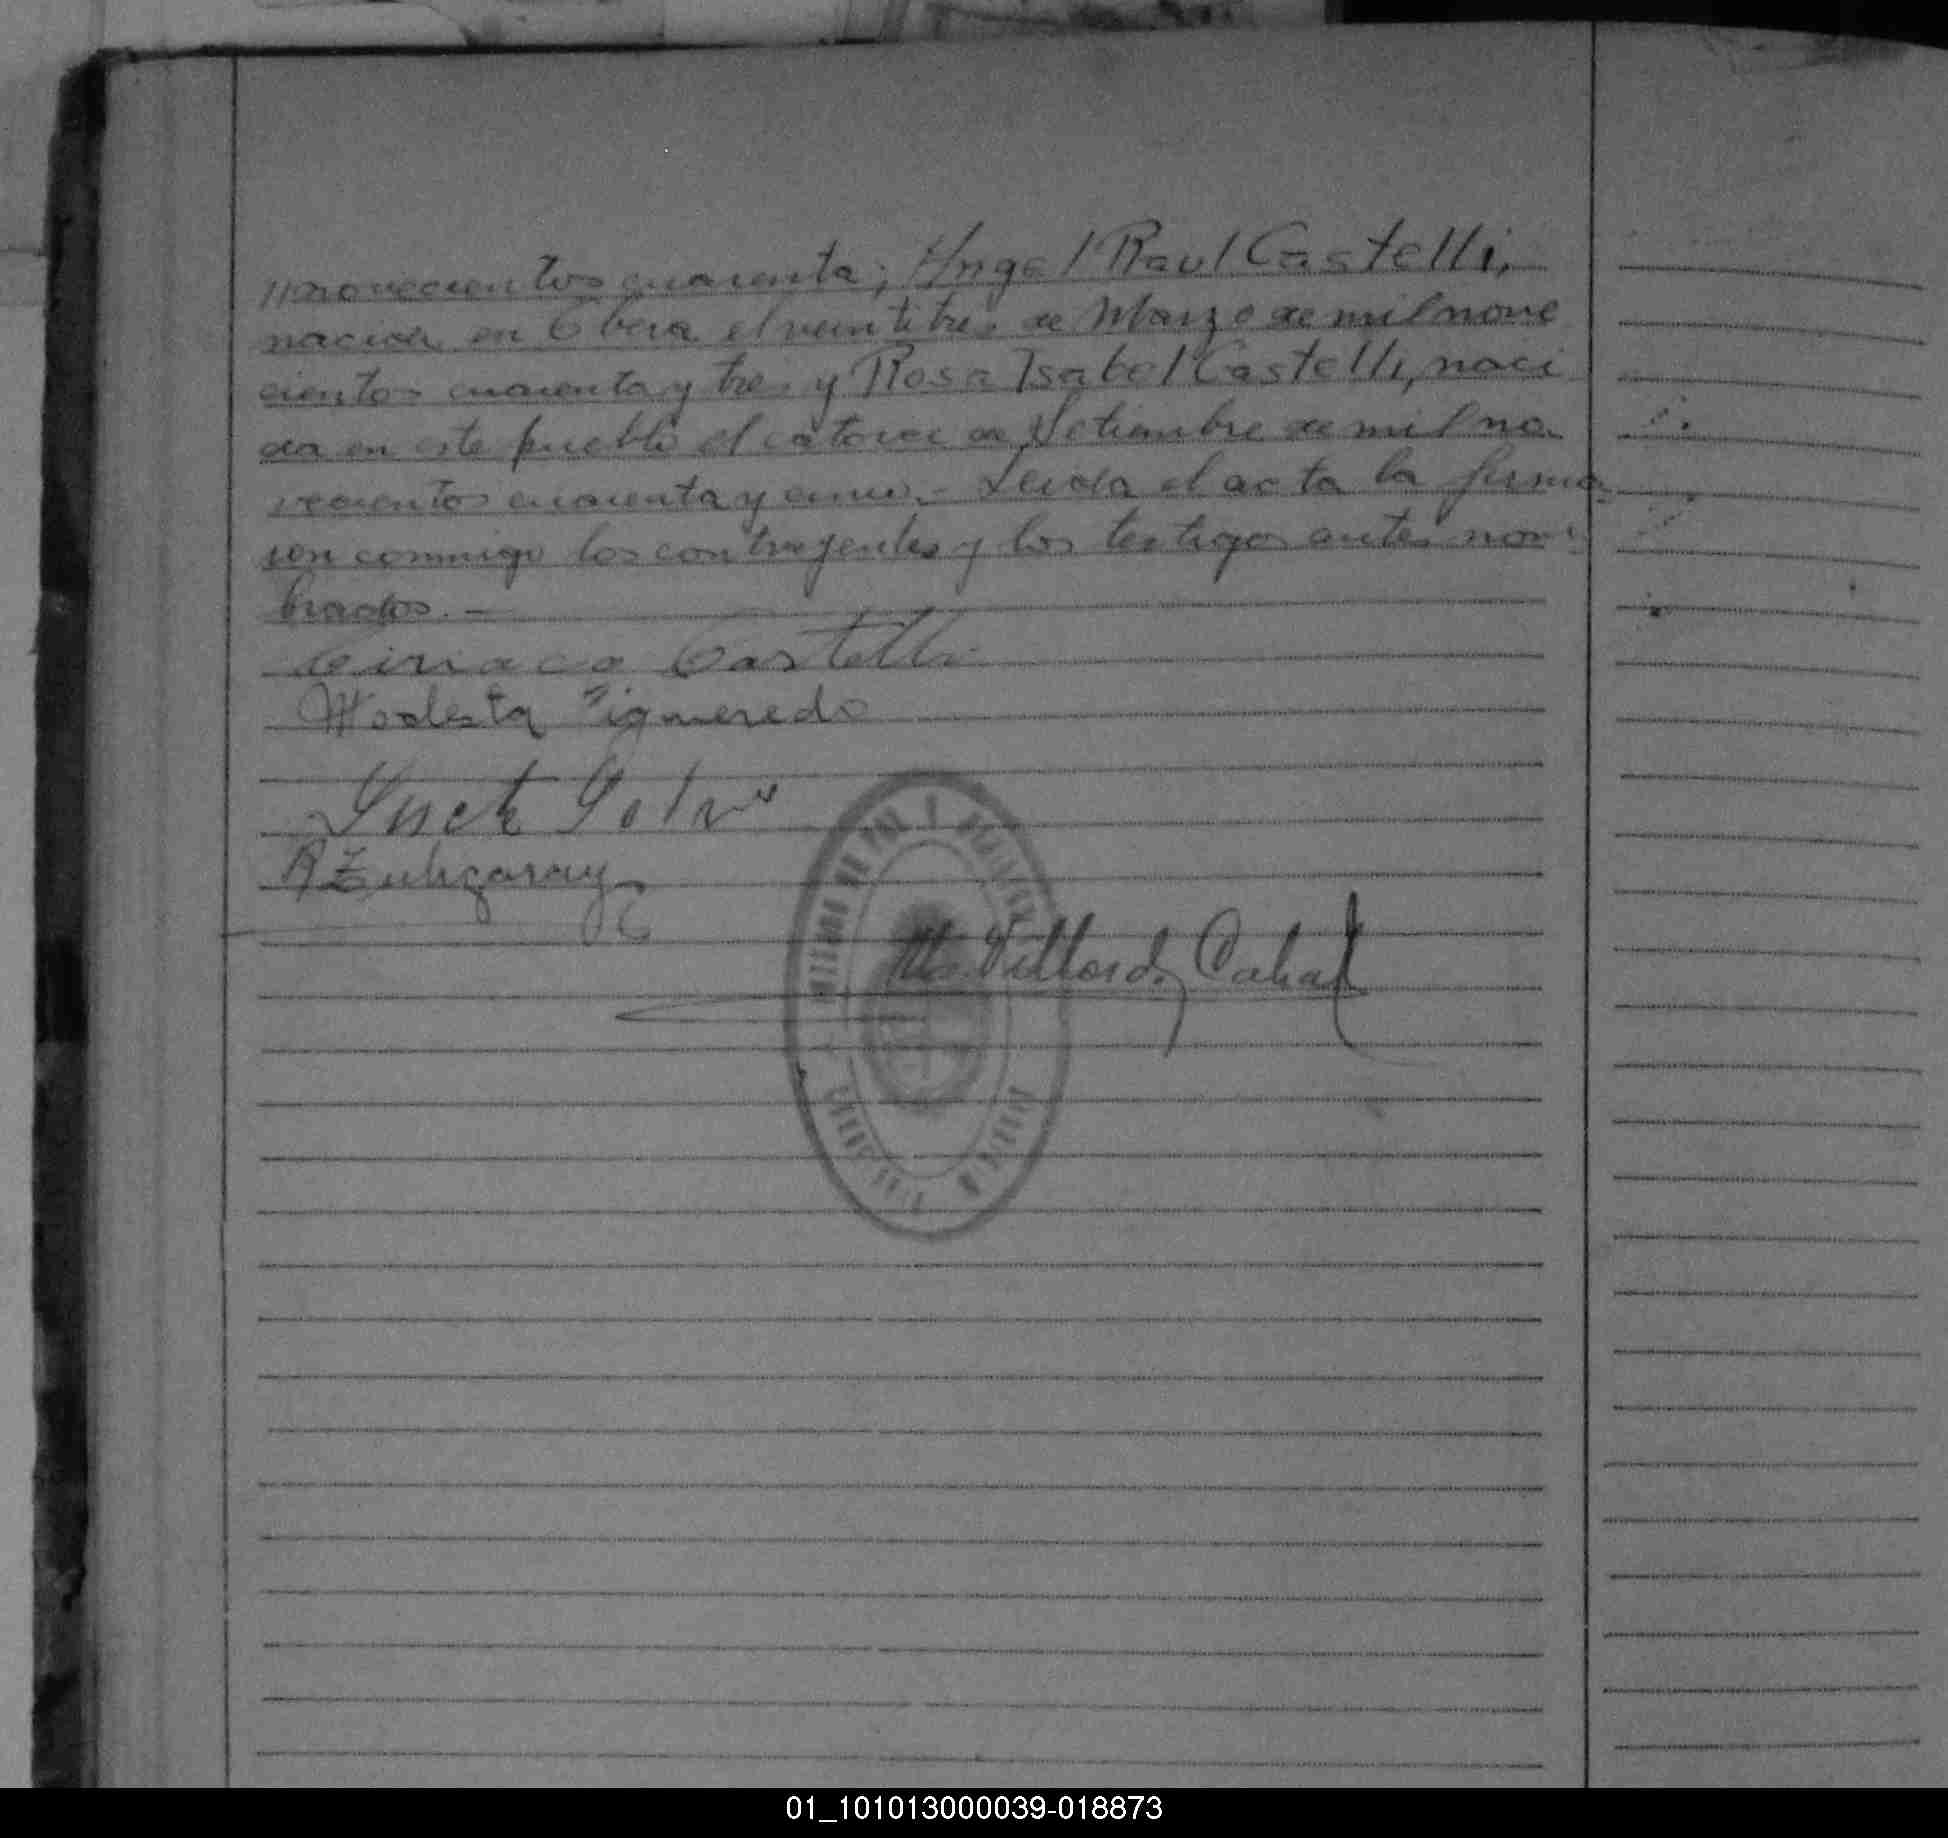 //novecientos cuarenta; Angel Raul Castelli,
nacido en Obera el veintitres de Marzo de mil nove
cientos cuarenta y tres y Rosa Isabel Castelli, naci
da en este pueblo el catorce de Setiembre de mil no
vecientos cuarenta y cinco.- Leida el acta la firma
ron conmigo los contrayentes y los testigos antes nom
brados. -
Ciriaco Castelli
Modesta Figueredo
R Zubizaray
M. Villordo Cabral
JUZGADO DE PAZ Y
01_101013000039-018873